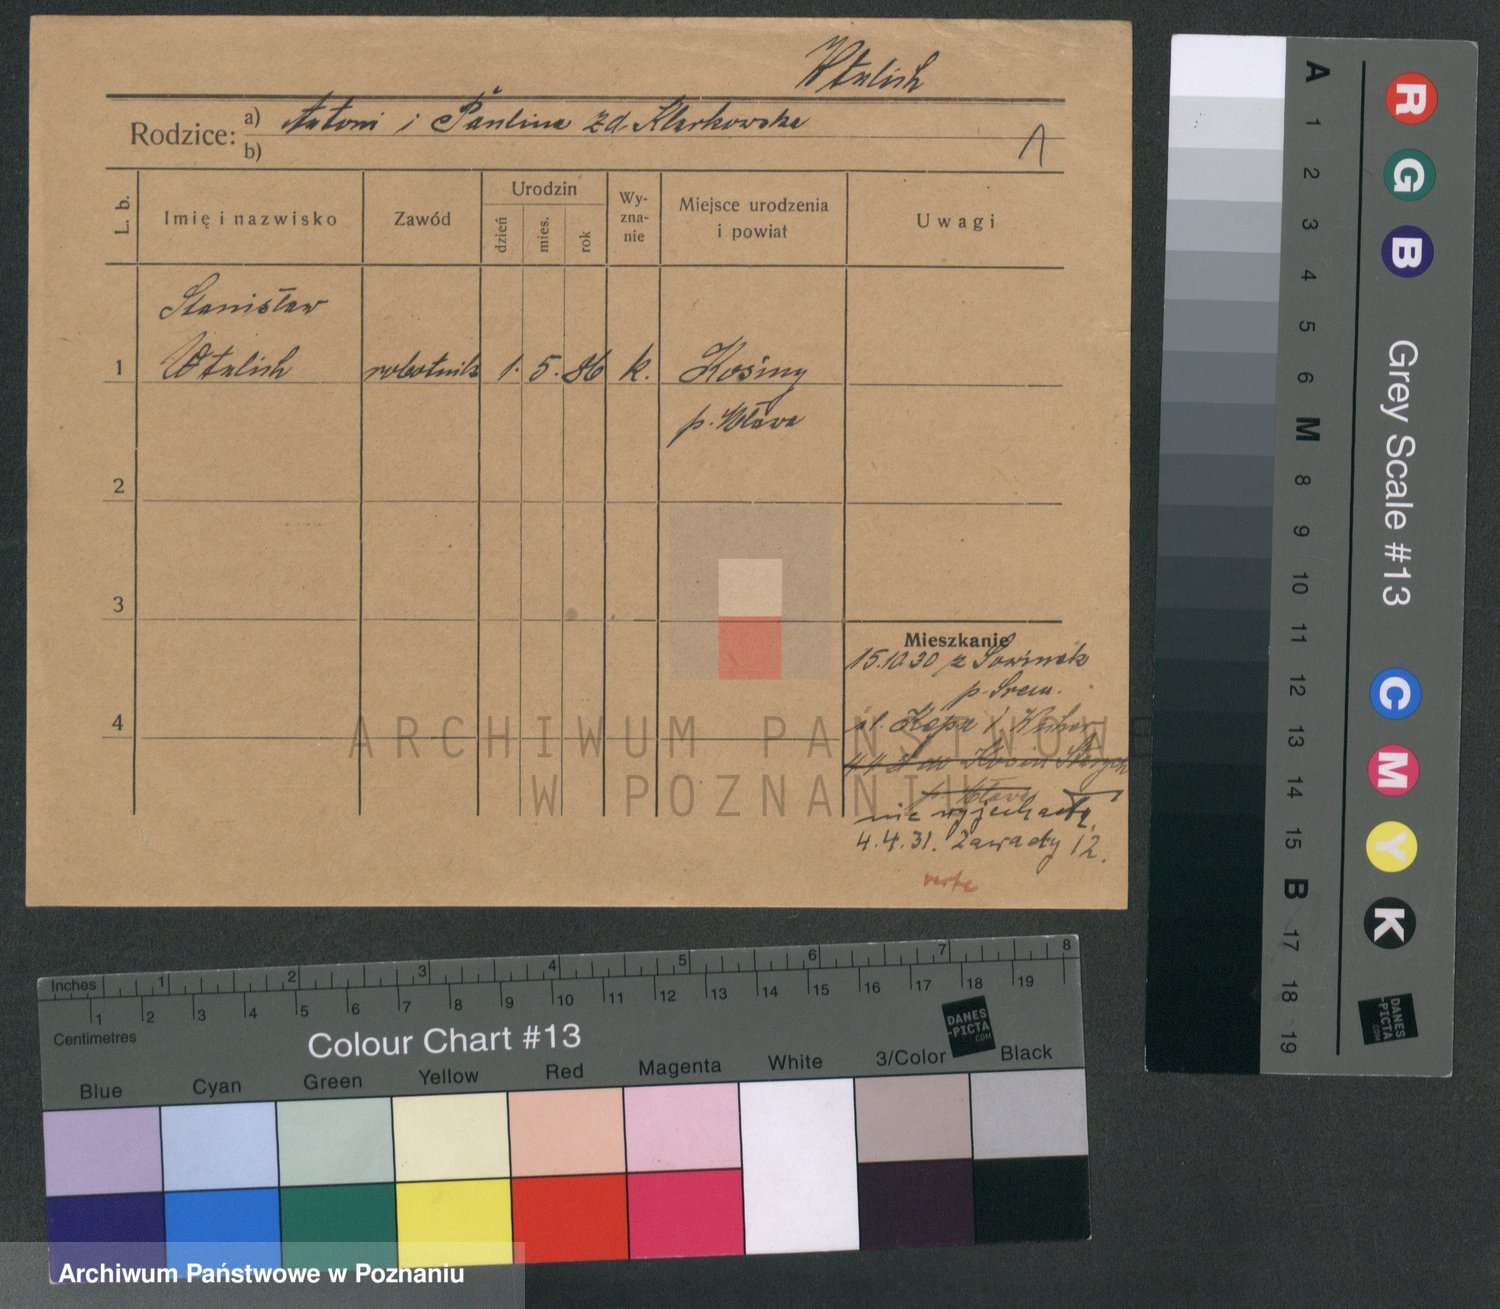 Wtulich
Rodzice: a) Antoni i Paulina zd. Klarkowska
b)
L. b.
Imię i nazwisko
Zawód
Urodzin
dzień
mies.
rok
Wy-
zna-
nie
Miejsce urodzenia
i powiat
Uwagi
Stanisław
1 Wtulich robotnik 1. 5. 86 k. Kosiny
p. Mława
2
3
4
Mieszkanie
15.10.30 z Sowiniec
p. Śrem.
4.4 do Kosin Starych
p. Mława
nie wyjechał
4.4.31. Zawady 12.
verte
ARCHIWUM PAŃSTWOWE
W POZNANIU
A 1 2 3 4 5 6 M 8 9 10 11 12 13 14 15 B 17 18 19
R G B
Grey Scale #13
C M Y K
DANES
-PICTA
.COM
Inches 1 2 3 4 5 6 7 8
1 2 3 4 5 6 7 8 9 10 11 12 13 14 15 16 17 18 19
Centimetres
Colour Chart #13
DANES
-PICTA
.COM
Blue Cyan Green Yellow Red Magenta White 3/Color Black
Archiwum Państwowe w Poznaniu